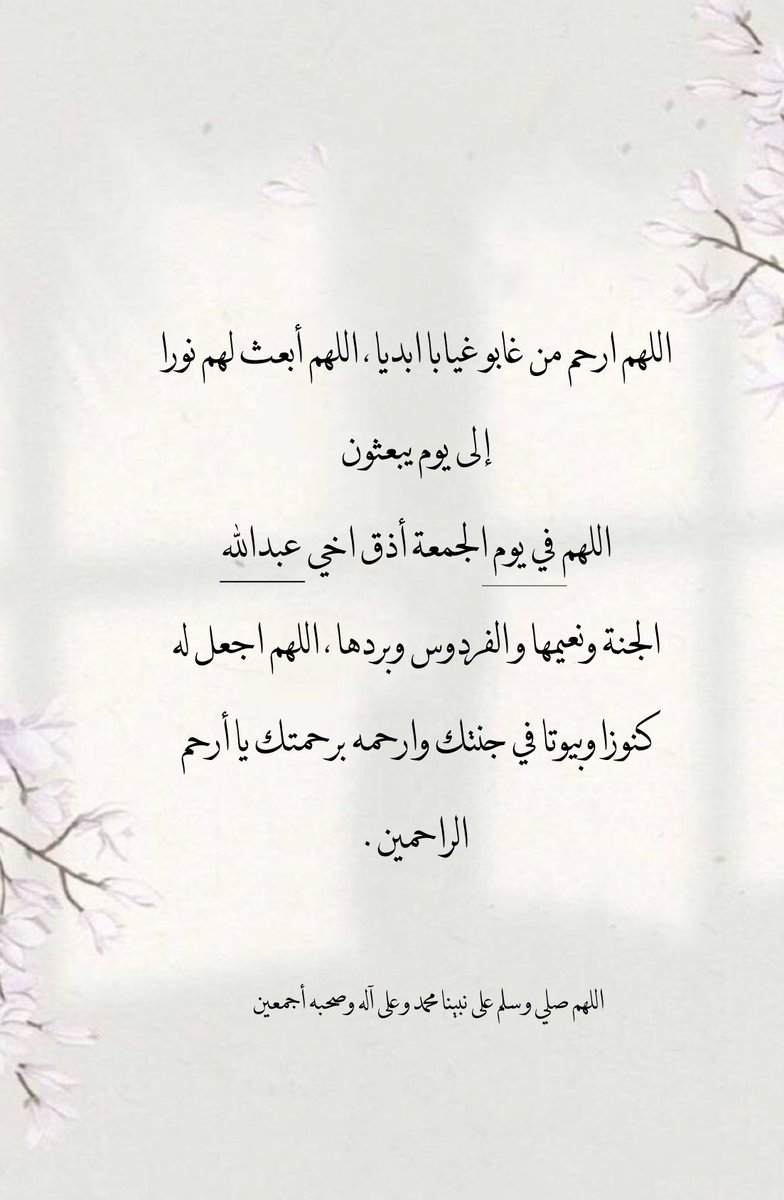 اللهم ارحم من غابو غيابا ابديا ، اللهم أبعث لهم نورا
إلى يوم يبعثون
اللهم في يوم الجمعة أذق اخي عبدالله
الجنة ونعيمها والفردوس وبردها ، اللهم اجعل له
كنوزا وبيوتا في جنتك وارحمه برحمتك يا أرحم
الراحمين .
اللهم صلي وسلم على نبينا محمد وعلى آله وصحبه أجمعين